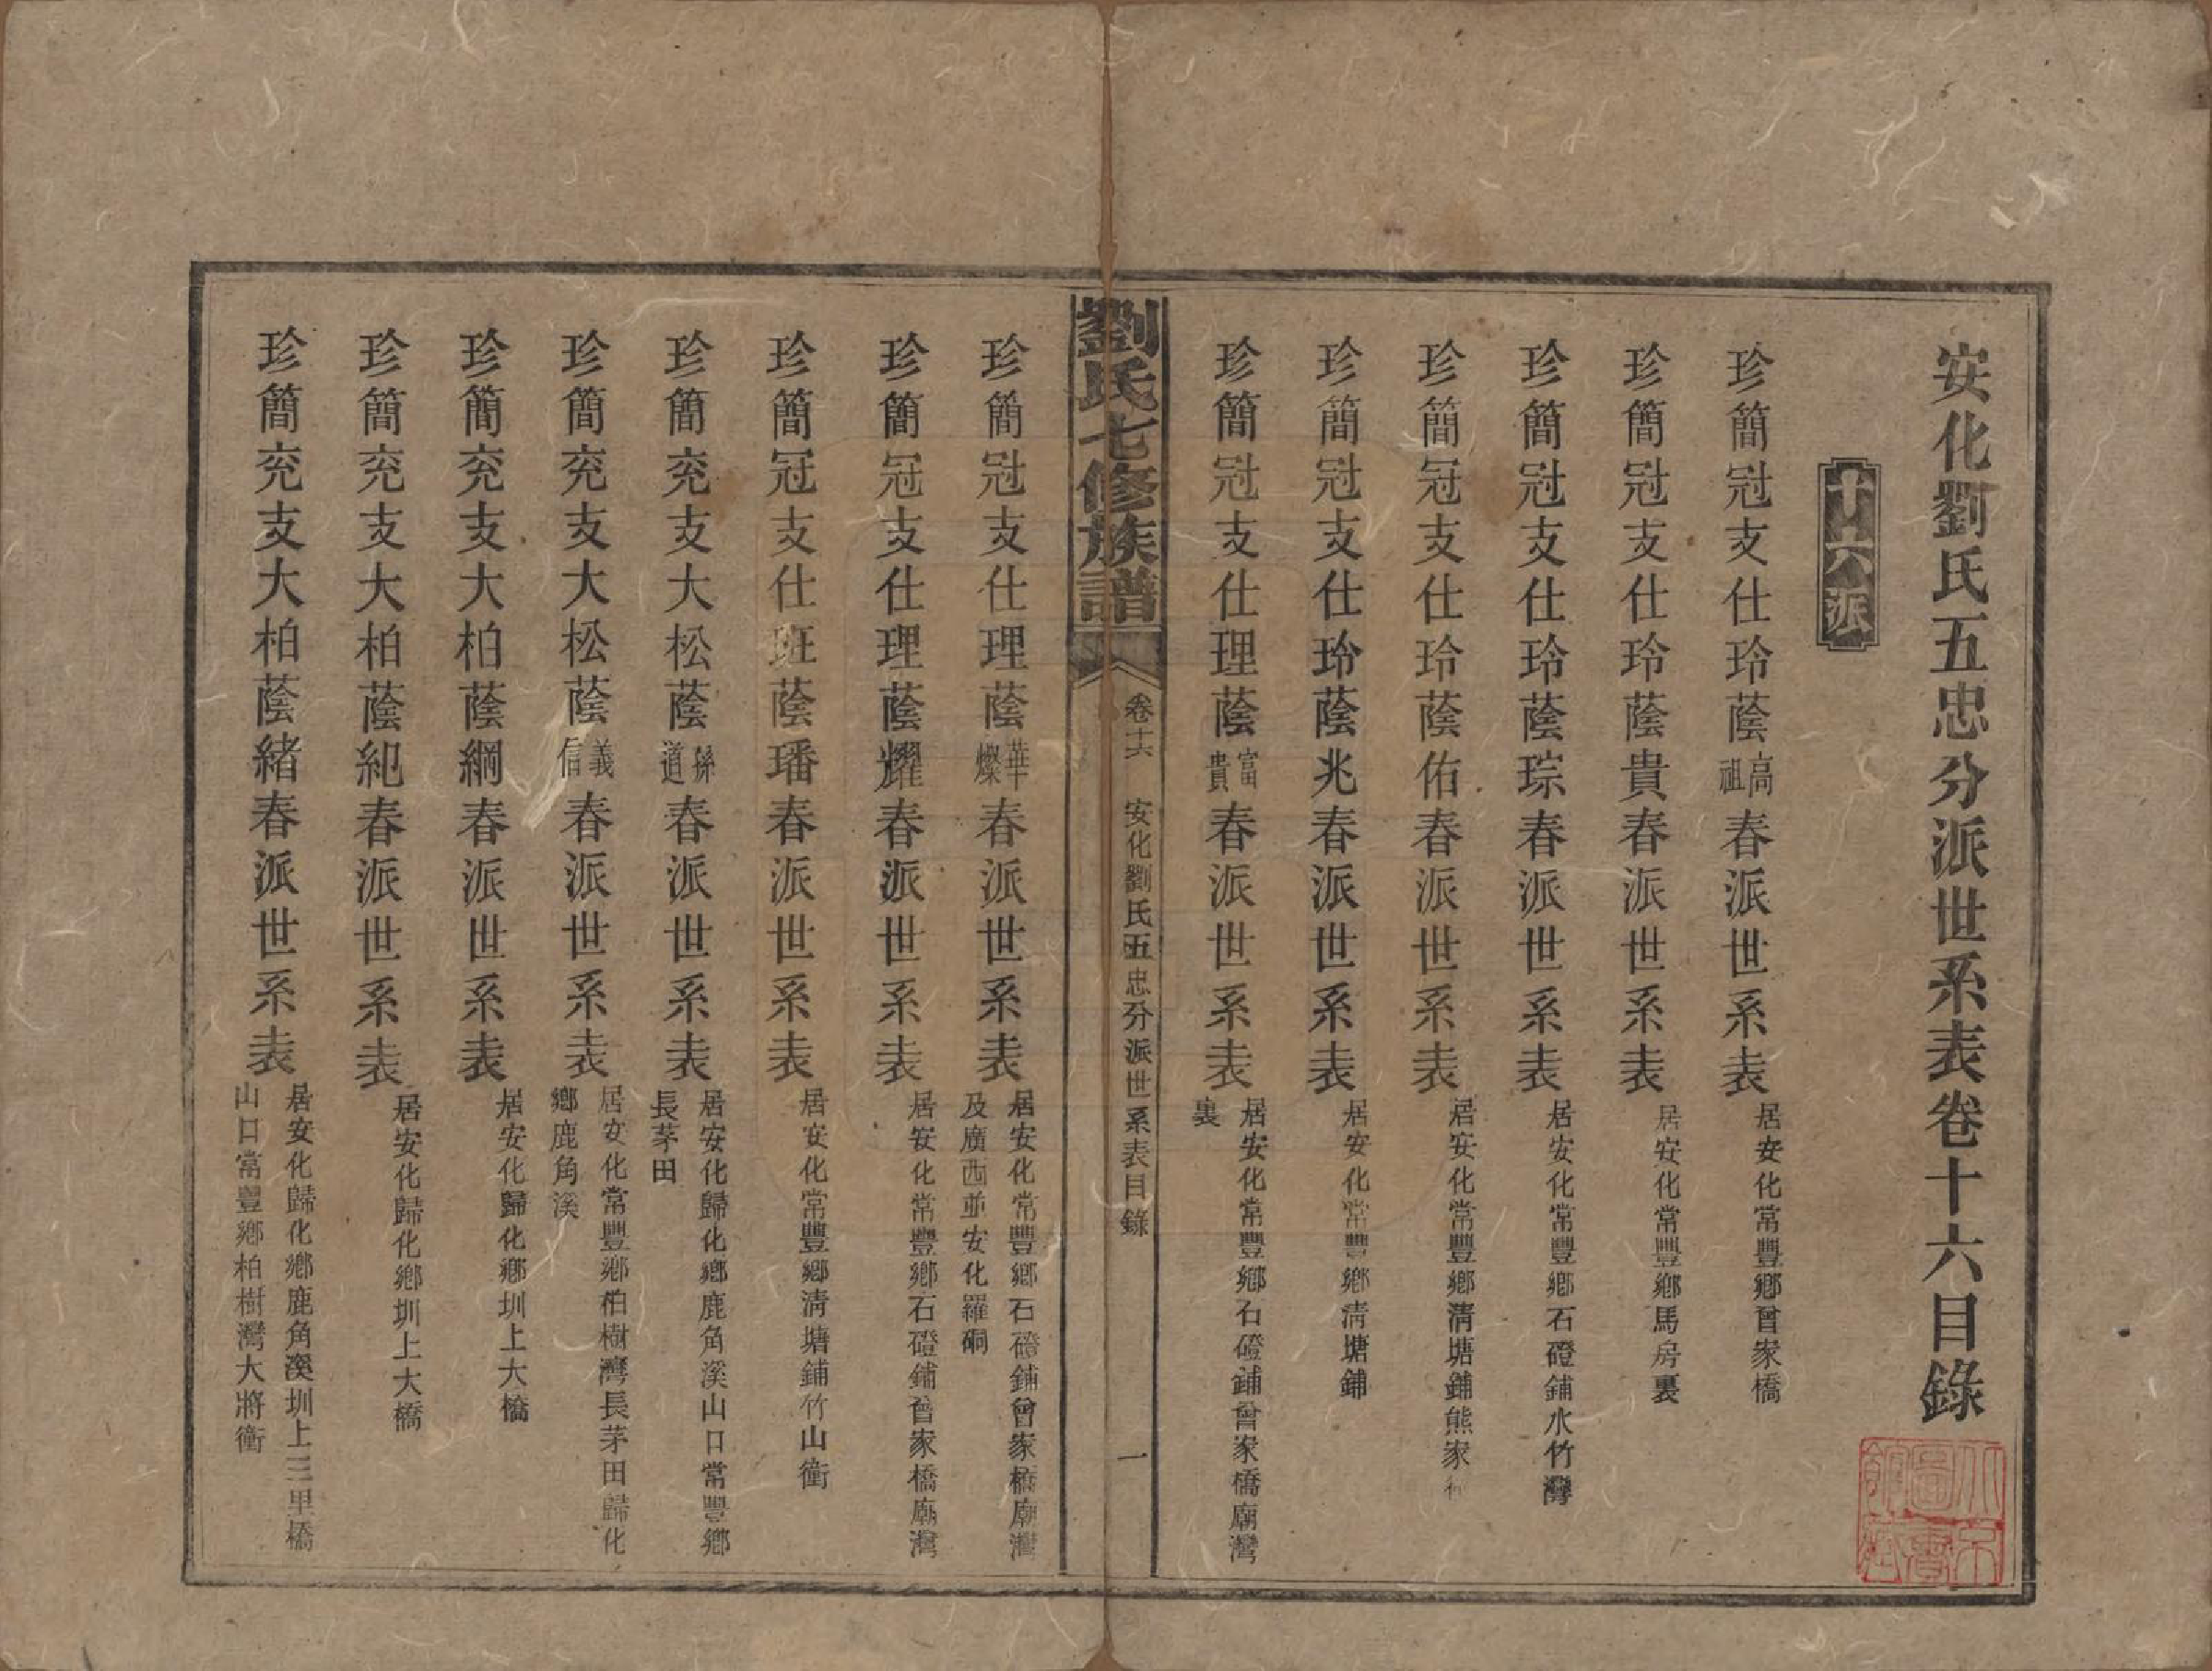 安化劉氏五忠分派世系表卷十六目錄
十六派
珍簡冠支仕玲蔭高祖春派世系表 居安化常豐鄉曾家橋
珍簡冠支仕玲蔭貴春派世系表 居安化常豐鄉馬房裏
珍簡冠支仕玲蔭琮春派世系表 居安化常豐鄉石磴鋪水竹灣
珍簡冠支仕玲蔭佑春派世系表 居安化常豐鄉清塘鋪熊家
珍簡冠支仕玲蔭兆春派世系表 居安化常豐鄉清塘鋪
珍簡冠支仕理蔭富貴春派世系表 居安化常豐鄉石磴鋪曾家橋廟灣裏
劉氏七修族譜 卷十六 安化劉氏五忠分派世系表目錄 一
珍簡冠支仕理蔭華燦春派世系表 居安化常豐鄉石磴鋪曾家橋廟灣及廣西並安化羅硐
珍簡冠支仕理蔭耀春派世系表 居安化常豐鄉石磴鋪曾家橋廟灣
珍簡冠支仕班蔭璠春派世系表 居安化常豐鄉清塘鋪竹山衝
珍簡充支大松蔭孫道春派世系表 居安化歸化鄉鹿角溪山口常豐鄉長茅田
珍簡充支大松蔭義信春派世系表 居安化常豐鄉柏樹灣長茅田歸化鄉鹿角溪
珍簡充支大柏蔭綱春派世系表 居安化歸化鄉圳上大橋
珍簡充支大柏蔭紀春派世系表 居安化歸化鄉圳上大橋
珍簡充支大柏蔭緒春派世系表 居安化歸化鄉鹿角溪圳上三里橋山口常豐鄉柏樹灣大將衝
北京圖書館藏